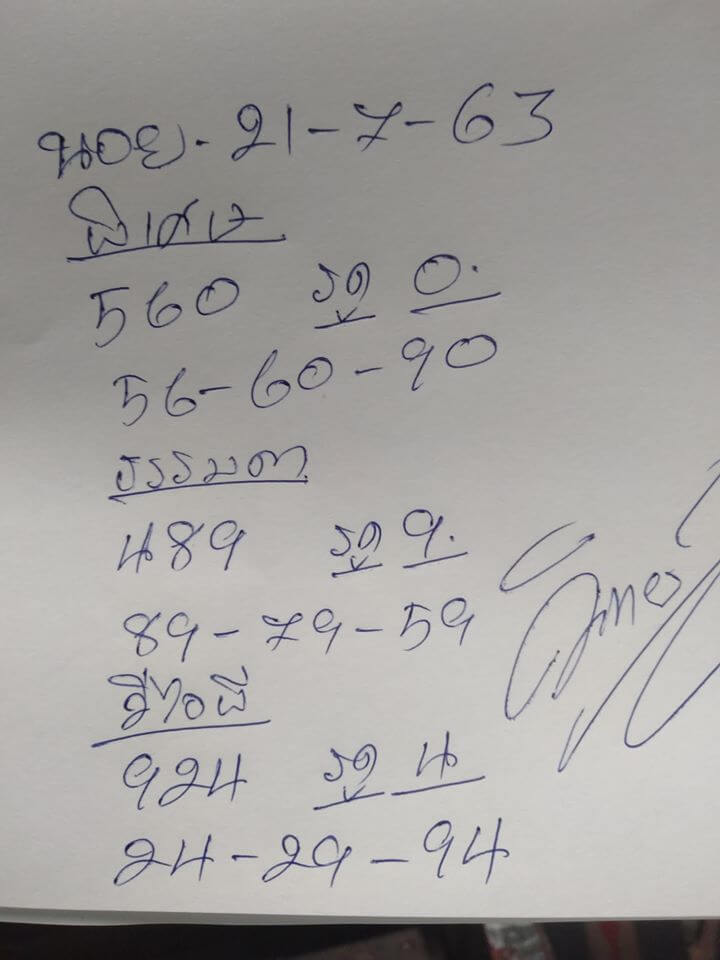 นอย. 21-7-63
พิเศษ
560 รูด 0.
56-60-90
ธรรมดา
489 รูด 9.
89-79-59
วีไอพี
924 รูด 4
24-29-94